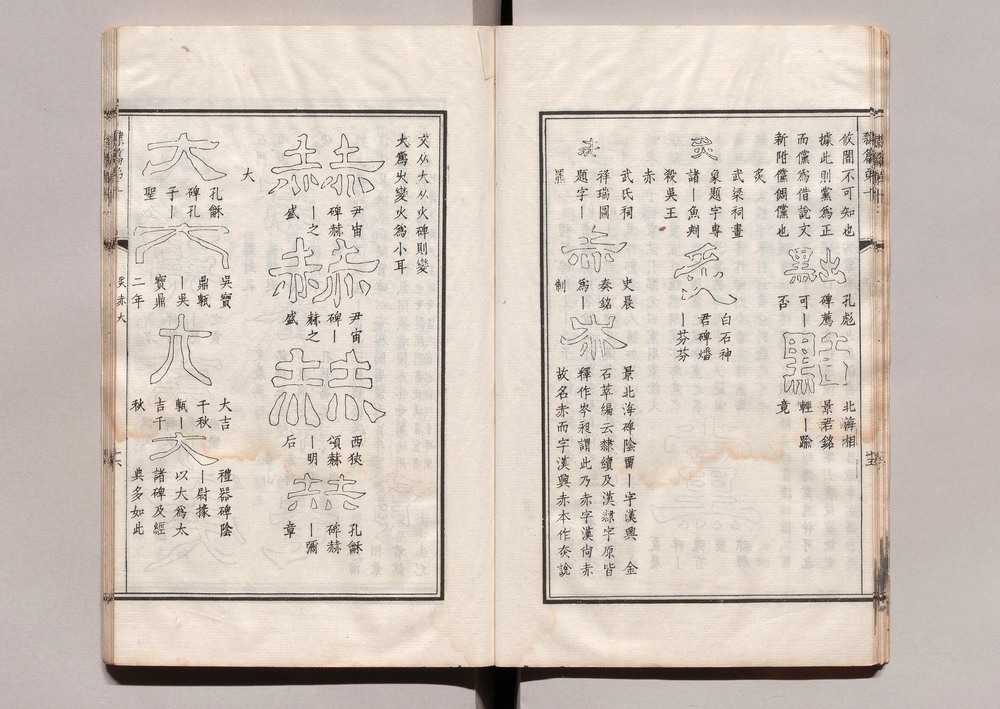 隸篇第十
攸闇不可知也
據此則黨爲正
而儻爲借說文
新附儻倜儻也
黜
孔彪
碑薦
可丨
否
黜
北海相
景君銘
輕丨踰
竟
炙
炙
武梁祠畫
象題字專
諸丨魚刺
殺吳王
炙
白石神
君碑燔
丨芬芬
赤
赤
武氏祠
祥瑞圖
題字丨
羆
赤
史晨
奏銘
爲丨
制
赤
景北海碑陰畱丨字漢興 金
石萃編云隸續及漢隸字原皆
釋作岑昶謂此乃赤字漢尙赤
故名赤而字漢興赤本作灻說
文从大从火碑則變
大爲火變火爲小耳
赫
尹宙
碑赫
丨之
盛
赫
尹宙
碑丨
赫之
盛
赫
西狹
頌赫
丨明
后
赫
孔龢
碑赫
丨彌
章
大
大
孔龢
碑孔
子丨
聖
大
吳寶
鼎甎
丨吳
寶鼎
二年
大
大吉
千秋
甎丨
吉千
秋
大
禮器碑陰
丨尉據
以大爲太
諸碑及經
典多如此
隸篇第十
炙赤大